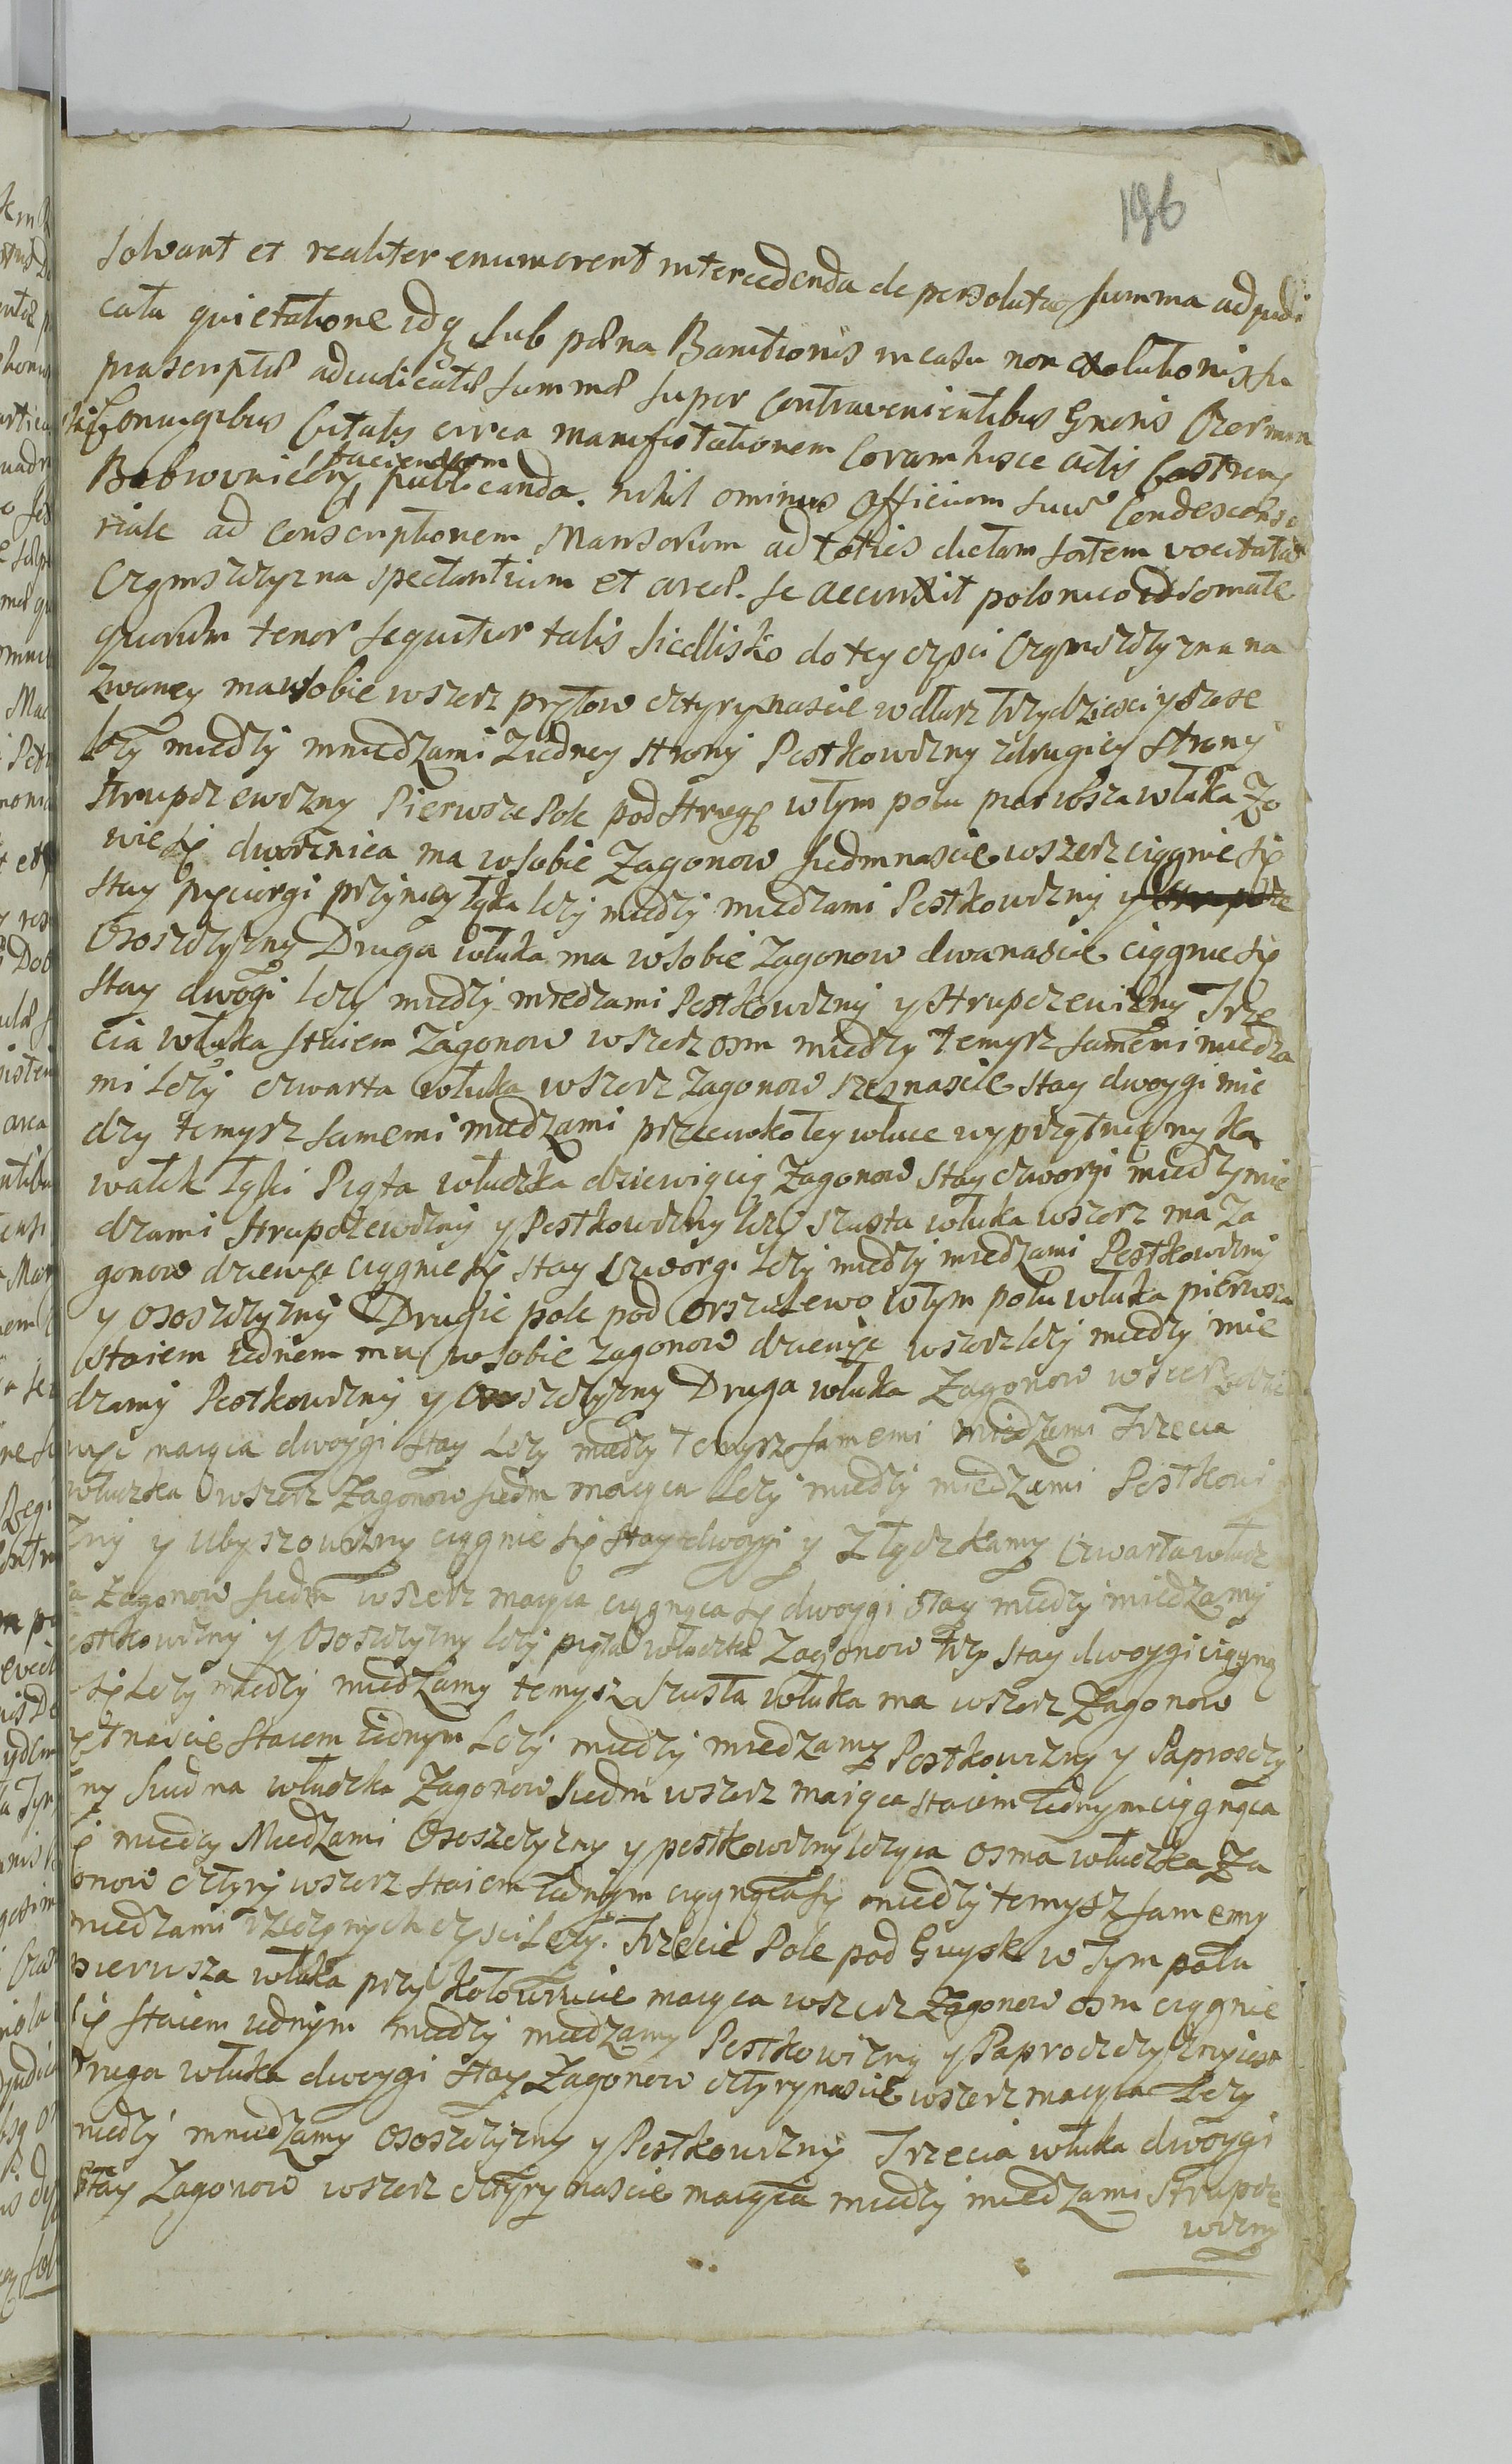 196
solvant et realiter enumerent intercedenda de persoluta summa adjudi
cata quietatione idq sub pæna Banitionis in casu non exolutionis su
præscriptæ adiudicatæ summæ super contravenientibus Gneris Czermin
ski Coniugibus Citatis circa manifestationem Coram hisce actis Castren
Bobrovnicen faciendam publicanda. nihil ominus Officium suæ Condescenso
riale ad conscriptionem Mansorum ad toties dictam sortem vocitatā
Czyminszczyzna spectantium et areæ. se accinxit polonico idiomate
quorum tenor sequitur talis Siedlisko do tey częsci Czyminszczyzna na
zwaney ma w sobie wszerz prętow cztyrynascie wdłusz trzydziesci y szese
leży miedzy mniedzami z iedney strony Pestkowizny z drugiey strony
Strupczewizny Pierwsze Pole pod Strugę w tym polu pierwsza włuka zo
wie się dwornica ma wsobie Zagonow siedmnascie wszerz ciągnie się
stay pęciorgi przyniey łąka leży miedzy miedzami Pestkowizny y
Ososzczyzny Druga włuka ma wsobie Zagonow dwanascie ciągnie się
stay dwoygi leży miedzy miedzami Pestkowizny y Strupczewizny Trze
cia włuka staiem Zagonow wszerz osm miedzy temysz samemi miedza
mi leży czwarta włuka wszerz zagonow szesnascie stay dwoygi mie
dzy temysz samemi miedzami przeciwko tey włuce wyprzątnięny ka
wałek łąki Piąta włuczka dziewiącią Zagonow stay czworgi miedzy mie
dzami Strupczewizny y Pestkowizny leży szusta włuka wszerz ma za
gonow dziewię ciągnie się stay czworgi leży miedzy miedzami Pestkowizny
y Ososzczyzny Drugie pole pod Orszulewo w tym polu włuka pierwsza
staiem iednem ma wsobie zagonow dziewię wszerz leży miedzy mie
dzamy Pestkowizny y Ososzczyzny Druga włuka Zagonow wszerz dzie
więc maiąca dwoygi stay leży miedzy temysz samemi miedzami Trzecia
włuczka wszerz Zagonow siedm maiąca leży miedzy miedzami Pestkowi
zny y Ubyszowizny ciągnie się stay dwoygi y z łączkamy Czwarta włucz
a Zagonow siedm wszerz maiąca ciągnąca się dwoygi stay miedzy miedzamy
estkowizny y Ososzczyzny leży piąta włuczka Zagonow trzy stay dwoygi ciągną
się leży miedzy miedzamy temysz Szusta włuka ma wszerz Zagonow
ętnascie staiem iednym leży miedzy miedzamy Pestkowizny y Paproczczy
zny siudma włuczka Zagonow siedm wszerz maiąca staiem iednym ciągnąca
ę miedzy Miedzami Ososzczyzny y pestkowizny leżąca osma włuczka Za
onow cztyry wszerz staiem iednym ciągnąca się miedzy temysz samemy
miedzami rzeczonych części leży. Trzecie Pole pod Guysk w tym polu
pierwsza włuka przy kołowrucie maiąca wszerz Zagonow osm ciągnie
się staiem iednym miedzy miedzamy Pestkowizny y Paproczczyzny iest
Druga włuka dwoygi stay Zagonow cztyrynascie wszerz maiąca leży
miedzy mniedzamy Ososzczyzny y Pestkowizny Trzecia włuka dwoygi
stay Zagonow wszerz cztyrynascie maiąca miedzy miedzami Strupcze
wizny